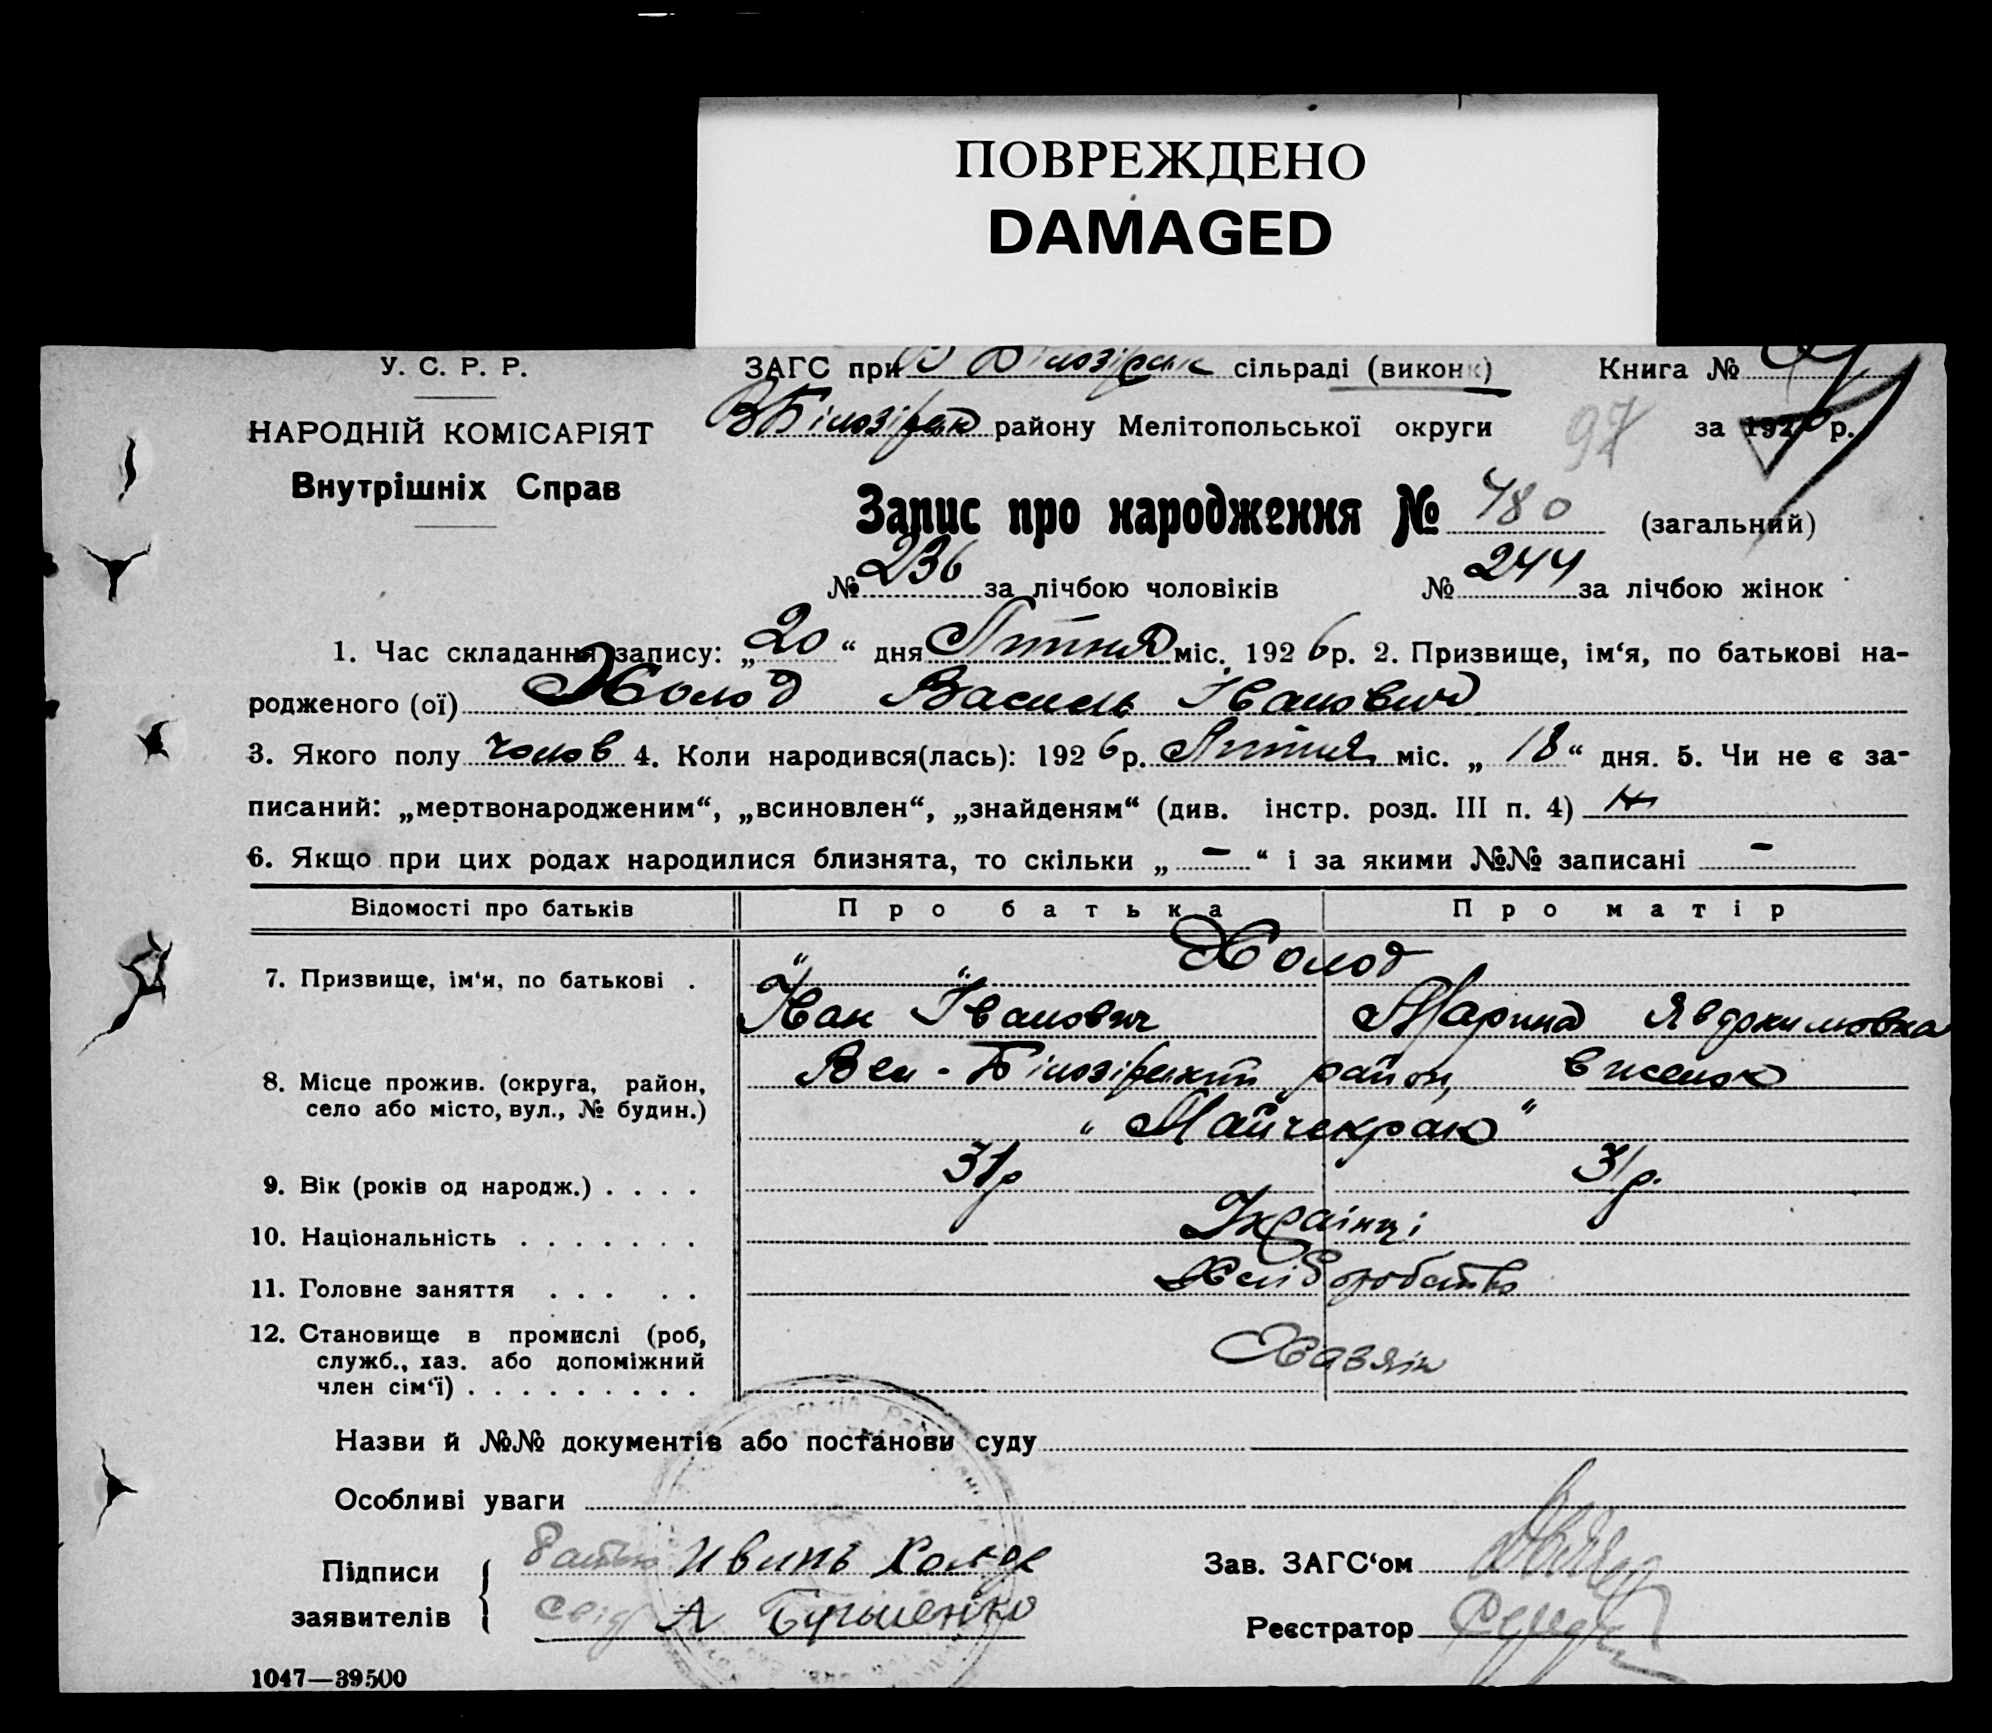 ПОВРЕЖДЕНО
DAMAGED
У. С. Р. Р.
ЗАГС при В Білозірск сільраді (виконк)
Книга №
НАРОДНІЙ КОМІСАРІЯТ
В Білозірск району Мелітопольської округи
97
за 192 р.
Внутрішніх Справ
Запис про народження № 480 (загальний)
№ 236 за лічбою чоловіків № 244 за лічбою жінок
1. Час складання запису: „20“ дня Липня міс. 1926 р. 2. Призвище, ім‘я, по батькові на-
родженого (ої) Холод Василь Іванович
3. Якого полу чолов 4. Коли народився(лась): 1926 р. Липня міс. „18“ дня. 5. Чи не є за-
писаний: „мертвонародженим“, „всиновлен“, „знайденям“ (див. інстр. розд. III п. 4)
6. Якщо при цих родах народилися близнята, то скільки „ - “ і за якими №№ записані -
Відомості про батьків Про батька Про матір
Холод
7. Призвище, ім‘я, по батькові .
Іван Іванович Марина Явдокимовна
8. Місце прожив. (округа, район, Вел - Білозірский район, висенок
село або місто, вул., № будин.) "Майчекрак"
9. Вік (років од народж.) . . . . 31р 31р.
10. Національність . . . . . . . Українці
11. Головне заняття . . . . . Хліборобство
12. Становище в промислі (роб,
служб., хаз. або допоміжний Хазяін
член сім‘ї) . . . . . . . . . .
Назви й №№ документів або постанови суду
Особливі уваги
Підписи Батько Иванъ Холод
Зав. ЗАГС‘ом
заявителів свід А
Реєстратор
1047—39500